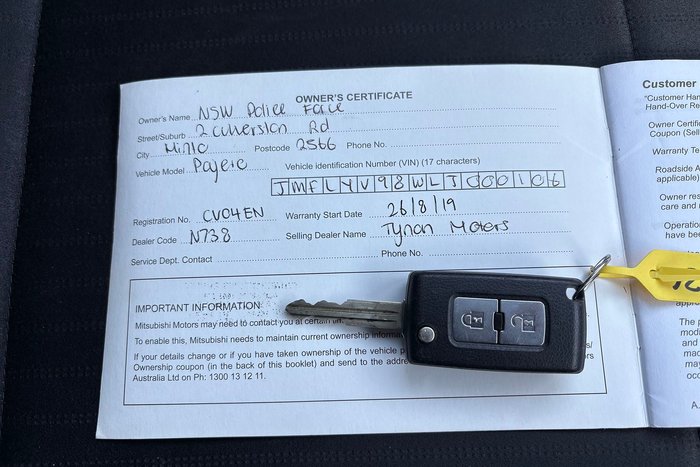 OWNER'S CERTIFICATE
Owner's Name NSW Police Force
Street/Suburb 2 Culverston Rd
City Minto Postcode 2566 Phone No.
Vehicle Model Pajero Vehicle identification Number (VIN) (17 characters)
JMFLYV98WLJ000106
Registration No. CV04EN Warranty Start Date 26/8/19
Dealer Code N738 Selling Dealer Name Tynan Motors
Service Dept. Contact Phone No.
IMPORTANT INFORMATION
Mitsubishi Motors may need to contact you at certain
To enable this, Mitsubishi needs to maintain current ownership
If your details change or if you have taken ownership of the vehicle
Ownership coupon (in the back of this booklet) and send to the
Australia Ltd on Ph: 1300 13 12 11.
Customer
"Customer Han
Hand-Over Re
Owner Certifi
Coupon (Sell
Warranty Te
Roadside A
applicable)
Owner res
care and
Operation
have bee
The p
modi
and
mac
may
occ
A.